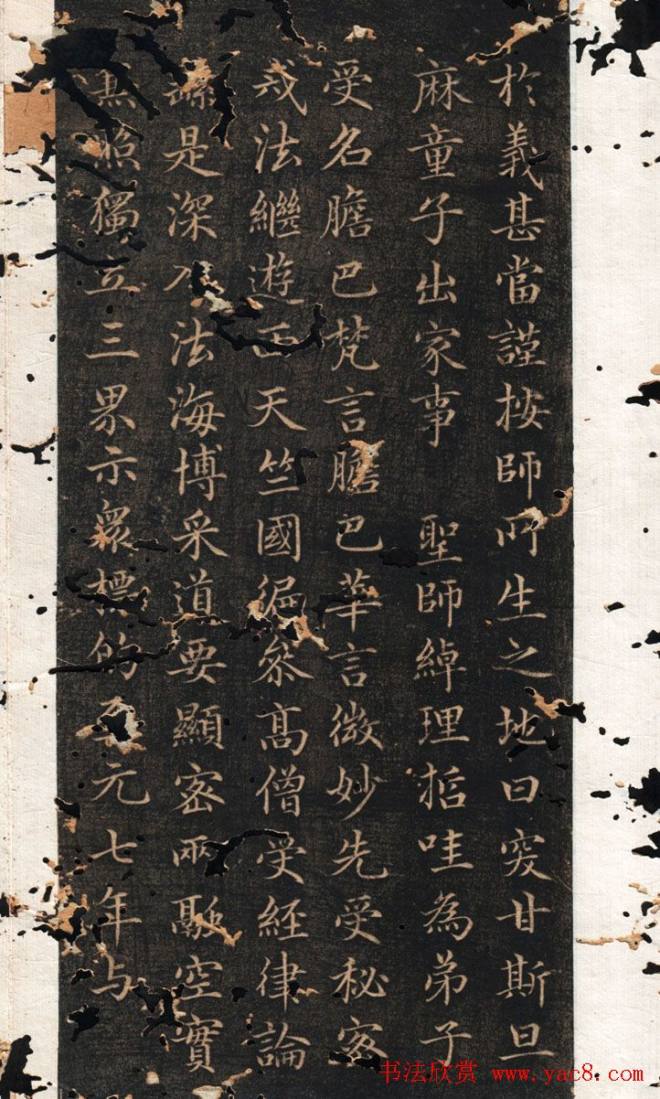 於義甚當謹按師所生之地曰突甘斯旦
麻童子出家事　聖師綽理哲哇為弟子
受名膽巴梵言膽巴華言微妙先受秘密
戒法繼遊西天竺國徧參高僧受經律論
繇是深入法海博采道要顯密兩融空實
兼照獨立三界示眾標的至元七年与
书法欣赏 www.yac8.com